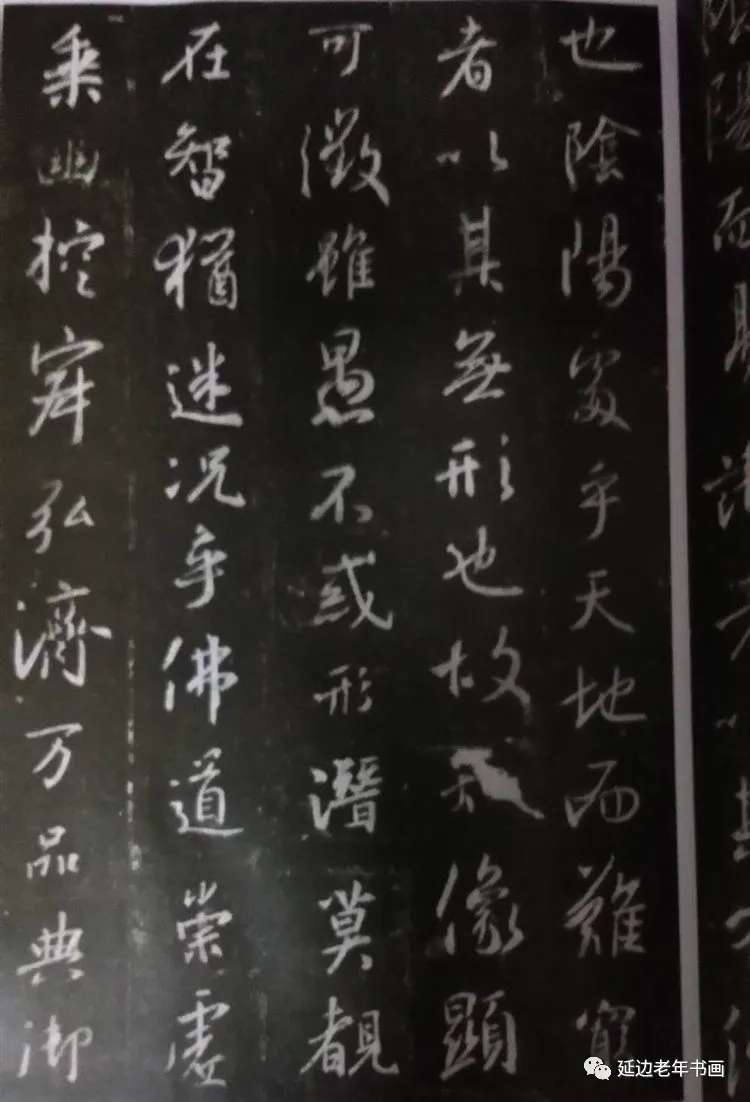 陽而
也陰陽處乎天地而難窮
者以其無形也故像顯
可徵雖愚不惑形潛莫覩
在智猶迷況乎佛道崇虛
乘幽控寂弘濟万品典御
延边老年书画